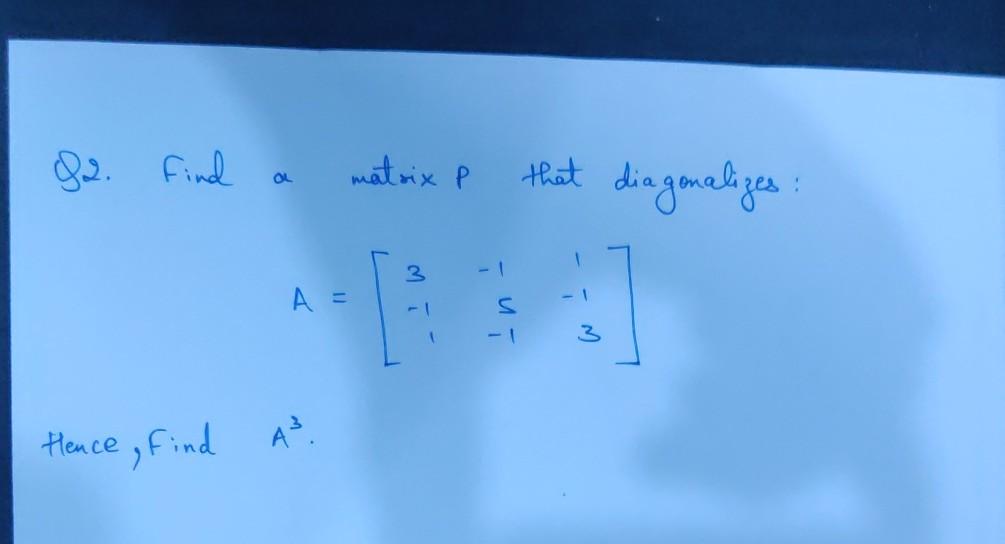 Q2. Find a matrix P that diagonalizes :
A = [ 3 -1 1
-1 5 -1
1 -1 3 ]
Hence, Find A³.